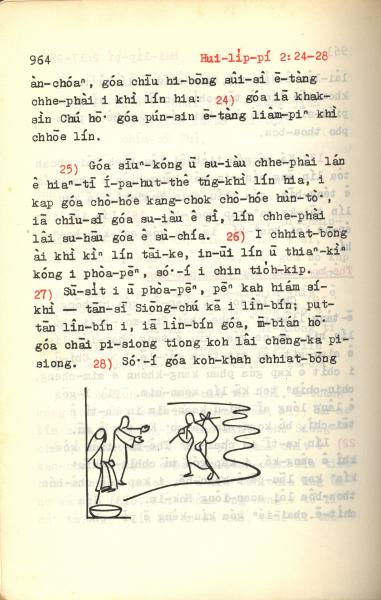 964 Hui-li̍p-pí 2:24-28
àn-chóaⁿ, góa chīu hi-bōng sûi-sî ē-tàng
chhe-phài i khì lín hia: 24) góa iā khak-
sìn Chú hō͘ góa pún-sin ē-tàng liâm-piⁿ khì
chhōe lín.
25) Góa sīuⁿ-kóng ū su-iàu chhe-phài lán
ê hiaⁿ-tī Í-pa-hut-thê tńg-khì lín hia, i
kap góa chò-hóe kang-chok chò-hóe hùn-tò͘,
iā chīu-sī góa su-iàu ê sî, lín chhe-phài
lâi su-hāu góa ê sù-chía. 26) I chhiat-bōng
ài khì kìⁿ lín tāi-ke, in-ūi lín ū thiaⁿ-kìⁿ
kóng i phòa-pēⁿ, só͘-í i chin tio̍h-kip.
27) Sū-si̍t i ū phòa-pēⁿ, pēⁿ kah hiám sí-
khì — tān-sī Siōng-chú kā i lîn-bín; put-
tàn lîn-bín i, iā lîn-bín góa, m̄-bián hō͘
góa chāi pi-siong tiong koh lâi chēng-ka pi-
siong. 28) Só͘-í góa koh-khah chhiat-bōng